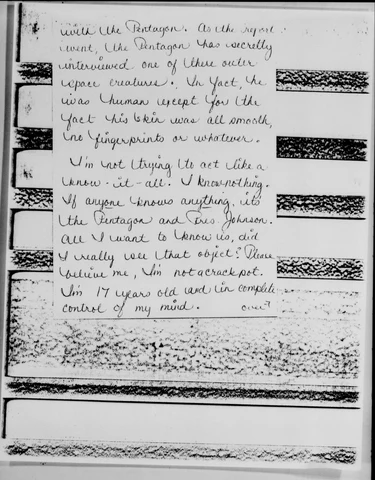 with the Pentagon. As the report
went, the Pentagon has secretly
interviewed one of these outer
space creatures. In fact, he
was human except for the
fact his skin was all smooth,
no fingerprints or whatever.
I'm not trying to act like a
know-it-all. I know nothing.
If anyone knows anything, its
the Pentagon and Pres. Johnson.
All I want to know is, did
I really see that object? Please
believe me, I'm not a crackpot.
I'm 17 years old and in complete
control of my mind. over